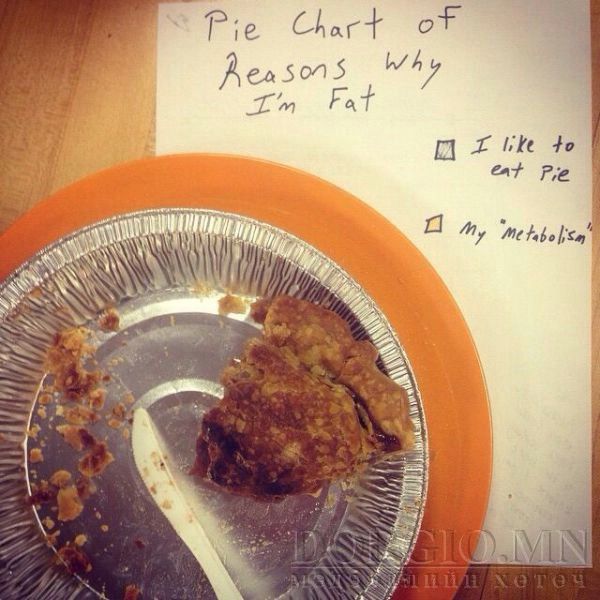 Pie Chart of
Reasons Why
I'm Fat
I like to
eat Pie
My "Metabolism"
DORGIO.MN
мэдээллийн хөтөч